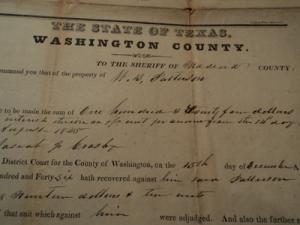 THE STATE OF TEXAS,
WASHINGTON COUNTY.
TO THE SHERIFF OF COUNTY:
mmand you that of the property of
W. R. Patterson
e to be made the sum of One hundred & twenty four dollars
interest thereon at pr annum from the 1st day
August 1845
District Court for the County of Washington, on the 15th day of December A
ndred and Forty-six hath recovered against him said Patterson
dollars & ten cents
that suit which against him were adjudged. And also the further s